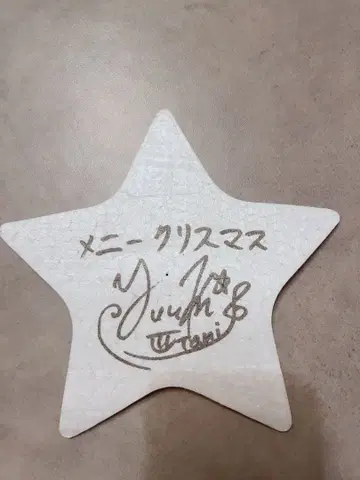 メニークリスマス
Yuuki
Tani